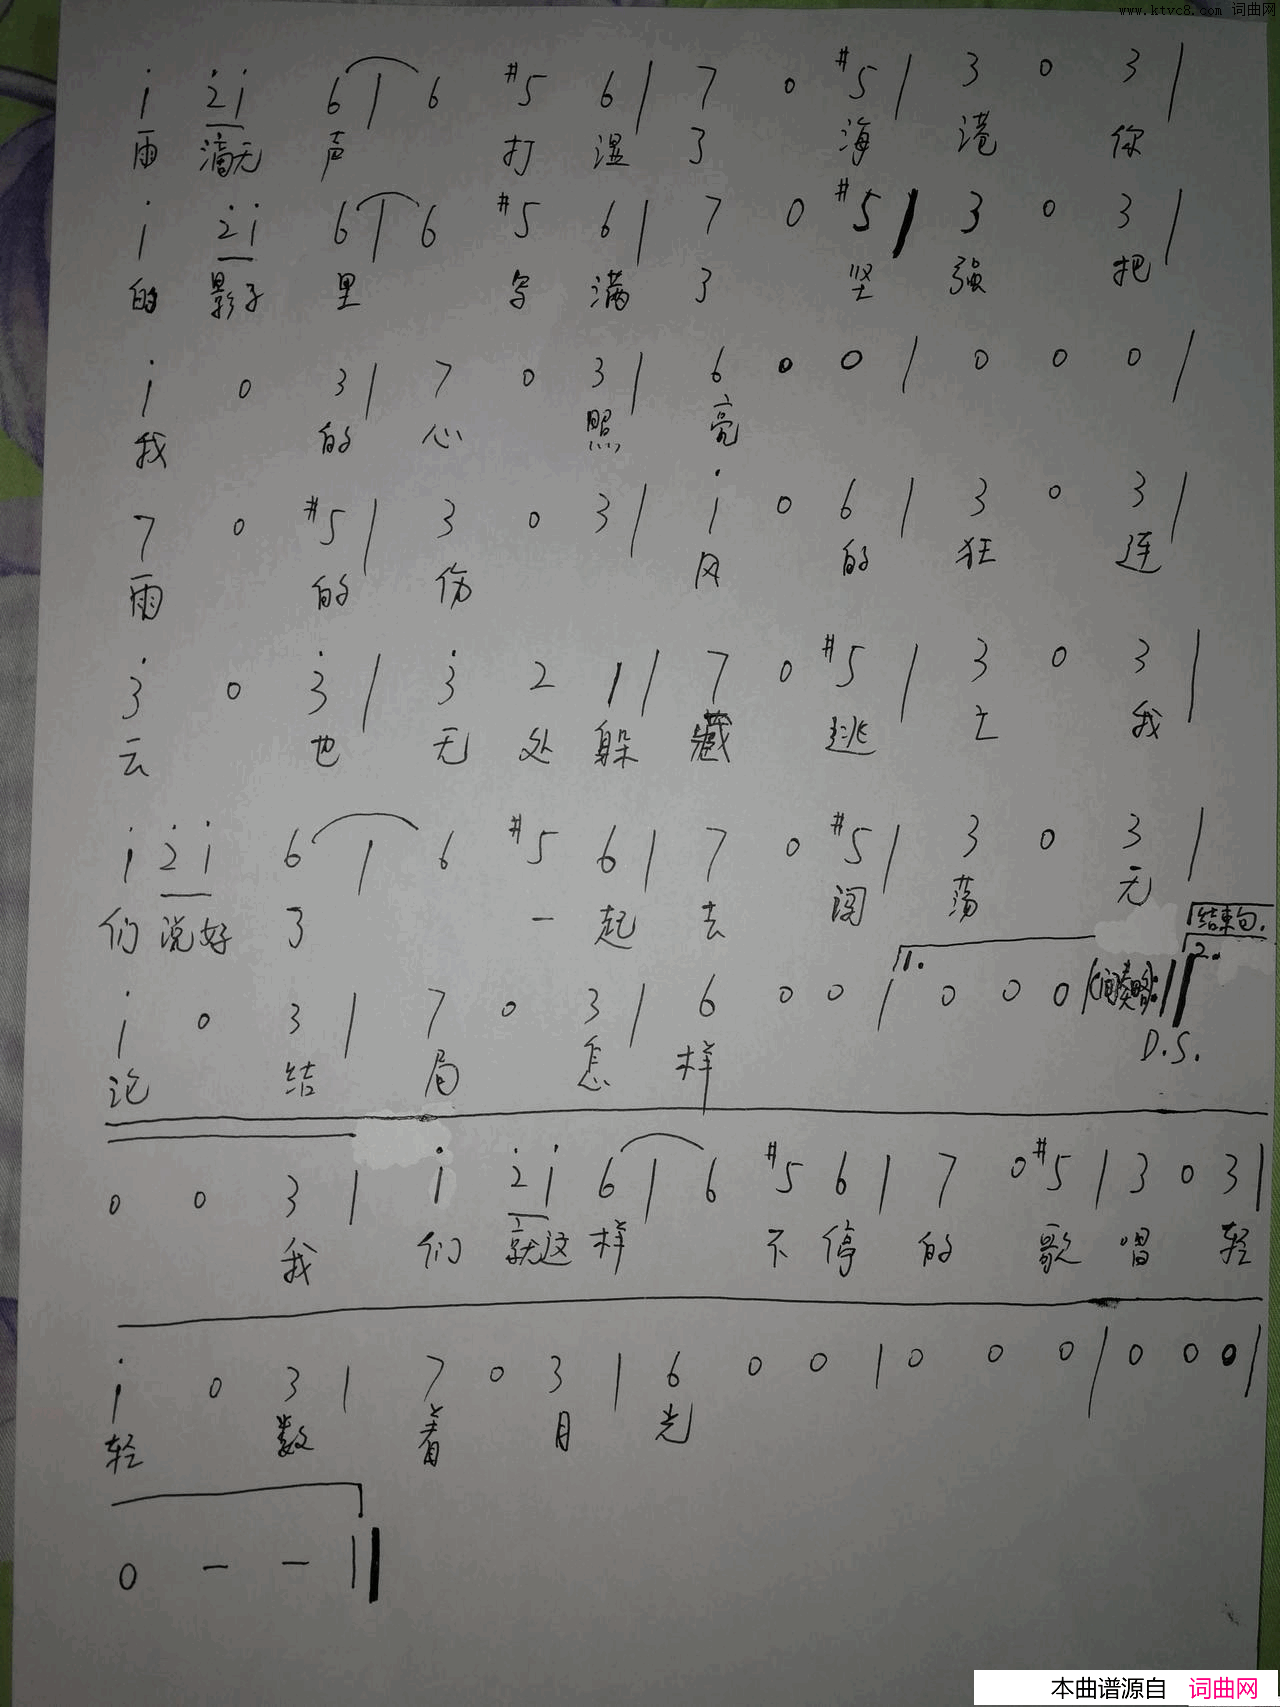 www.ktvc8.com 词曲网
i 2i 6 | 6 #5 6 | 7 0 #5 | 3 0 3 |
雨 滴无 声 打 湿 了 海 港 你
i 2i 6 | 6 #5 6 | 7 0 #5 | 3 0 3 |
的 影子 里 写 满 了 坚 强 把
i 0 3 | 7 0 3 | 6 0 0 | 0 0 0 |
我 的 心 照 亮
7 0 #5 | 3 0 3 | i 0 6 | 3 0 3 |
雨 的 伤 风 的 狂 连
3 0 3 | 3 2 1 | 7 0 #5 | 3 0 3 |
云 也 无 处 躲 藏 逃 亡 我
i 2i 6 | 6 #5 6 | 7 0 #5 | 3 0 3 |
们 说好 了 一 起 去 闯 荡 无
结束句.
1. 2.
i 0 3 | 7 0 3 | 6 0 0 | 0 0 0 | (间奏略) :||
D.S.
论 结 局 怎 样
0 0 3 | i 2i 6 | 6 #5 6 | 7 0 #5 | 3 0 3 |
我 们 就这 样 不 停 的 歌 唱 轻
i 0 3 | 7 0 3 | 6 0 0 | 0 0 0 | 0 0 0 |
轻 数 着 月 光
0 — — ||
本曲谱源自 词曲网